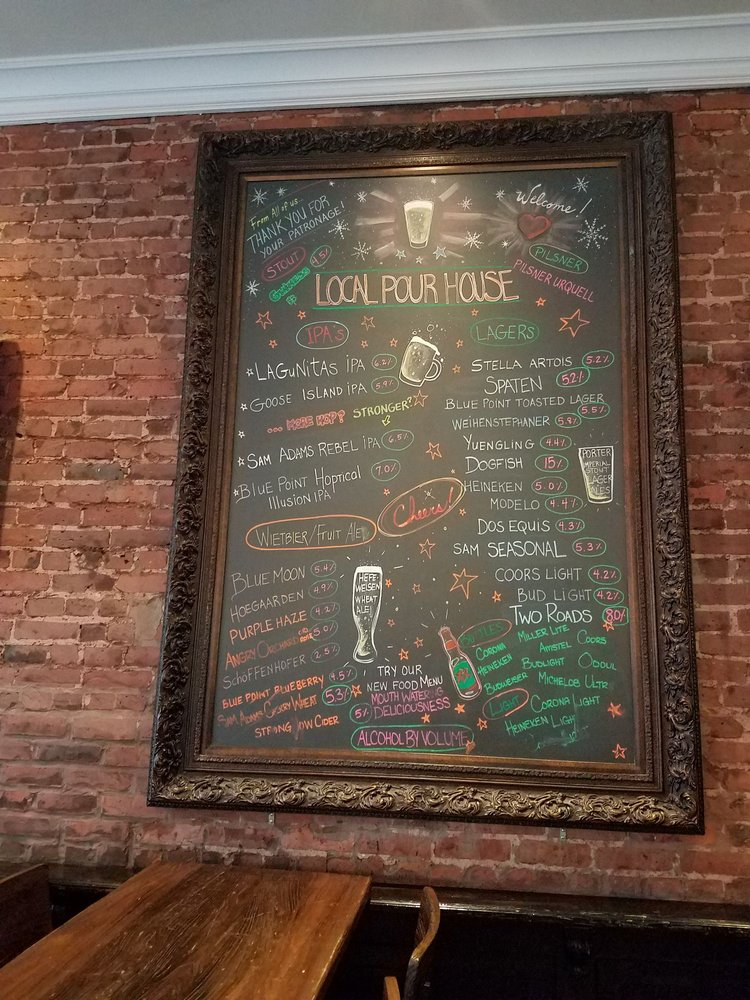 From All of us...
THANK YOU FOR
YOUR PATRONAGE!
STOUT
GUINNESS 4.5%
Welcome!
PILSNER
PILSNER URQUELL
LOCAL POUR HOUSE
IPA's
LAGUNITAS IPA 6.2%
GOOSE ISLAND IPA 5.9%
... MORE HOP? STRONGER?
SAM ADAMS REBEL IPA 6.5%
BLUE POINT HOPTICAL 7.0%
ILLUSION IPA
Cheers!
WIETBIER/FRUIT ALE
BLUE MOON 5.4%
HOEGAARDEN 4.9%
PURPLE HAZE 4.2%
ANGRY ORCHARD 5.0%
SCHOFFENHOFER 2.5%
BLUE POINT BLUEBERRY 4.5%
SAM ADAMS CHERRY WHEAT 5.3%
STRONG BOW CIDER 5%
HEFE-
WEISEN
WHEAT
ALE
TRY OUR
NEW FOOD MENU
MOUTH WATERING
DELICIOUSNESS
ALCOHOL BY VOLUME
LAGERS
STELLA ARTOIS 5.2%
SPATEN 5.2%
BLUE POINT TOASTED LAGER
5.5%
WEIHENSTEPHANER 5.8%
YUENGLING 4.4%
DOGFISH 15%
HEINEKEN 5.0%
MODELO 4.4%
DOS EQUIS 4.3%
SAM SEASONAL 5.3%
COORS LIGHT 4.2%
BUD LIGHT 4.2%
TWO ROADS 8.0%
PORTER
IMPERIAL
STOUT
LAGER
ALES
BOTTLES
CORONA
HEINEKEN
BUDWEISER
MILLER LITE
AMSTEL COORS
BUDLIGHT ODOUL
MICHELOB ULTR
LIGHT
CORONA LIGHT
HEINEKEN LIGH